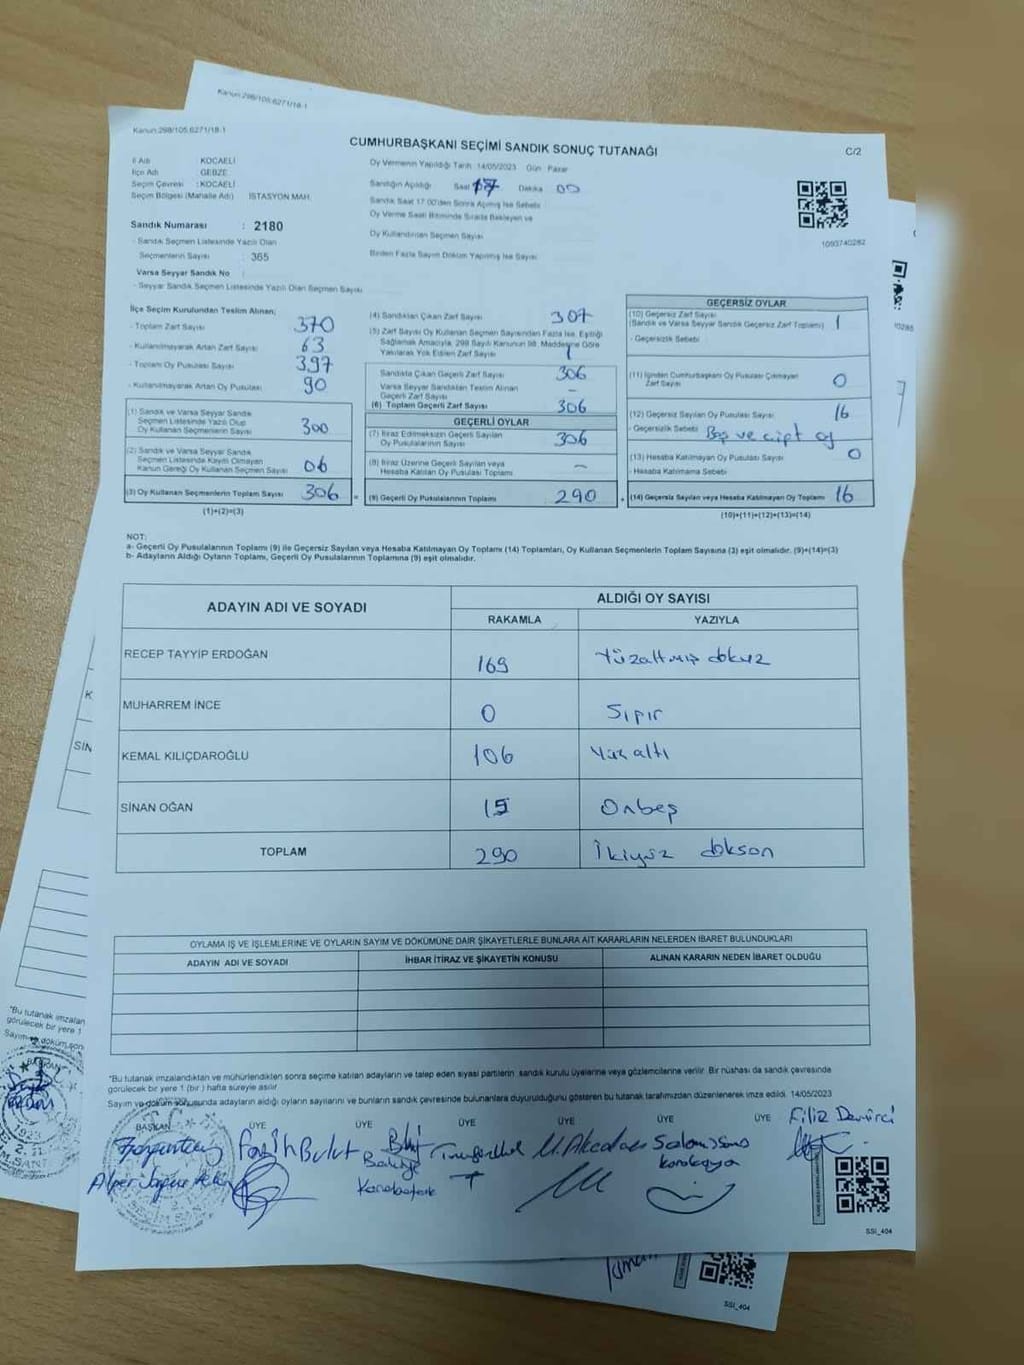 Kanun:298/105,6271/18-1
Kanun:298/105,6271/18-1
CUMHURBAŞKANI SEÇİMİ SANDIK SONUÇ TUTANAĞI
C/2
İl Adı : KOCAELİ
İlçe Adı : GEBZE
Seçim Çevresi : KOCAELİ
Seçim Bölgesi (Mahalle Adı) İSTASYON MAH.
Oy Vermenin Yapıldığı Tarih :14/05/2023 Gün : Pazar
Sandığın Açıldığı Saat 17 Dakika 00
Sandık Saat 17.00'den Sonra Açılmış İse Sebebi :
Oy Verme Saati Bitiminde Sırada Bekleyen ve
Oy Kullandırılan Seçmen Sayısı
Birden Fazla Sayım Döküm Yapılmış İse Sayısı
1093740282
Sandık Numarası : 2180
- Sandık Seçmen Listesinde Yazılı Olan
Seçmenlerin Sayısı : 365
Varsa Seyyar Sandık No :
- Seyyar Sandık Seçmen Listesinde Yazılı Olan Seçmen Sayısı
İlçe Seçim Kurulundan Teslim Alınan;
- Toplam Zarf Sayısı 370
- Kullanılmayarak Artan Zarf Sayısı 63
- Toplam Oy Pusulası Sayısı 397
- Kullanılmayarak Artan Oy Pusulası 90
(1) Sandık ve Varsa Seyyar Sandık
Seçmen Listesinde Yazılı Olup
Oy Kullanan Seçmenlerin Sayısı 300
(2) Sandık ve Varsa Seyyar Sandık
Seçmen Listesinde Kayıtlı Olmayan
Kanun Gereği Oy Kullanan Seçmen Sayısı 06
(3) Oy Kullanan Seçmenlerin Toplam Sayısı 306
(1)+(2)=(3)
(4) Sandıktan Çıkan Zarf Sayısı 307
(5) Zarf Sayısı Oy Kullanan Seçmen Sayısından Fazla İse, Eşitliği
Sağlamak Amacıyla, 298 Sayılı Kanunun 98. Maddesine Göre
Yakılarak Yok Edilen Zarf Sayısı 1
Sandıkta Çıkan Geçerli Zarf Sayısı 306
Varsa Seyyar Sandıktan Teslim Alınan
Geçerli Zarf Sayısı –
(6) Toplam Geçerli Zarf Sayısı 306
GEÇERLİ OYLAR
(7) İtiraz Edilmeksizin Geçerli Sayılan
Oy Pusulalarının Sayısı 306
(8) İtiraz Üzerine Geçerli Sayılan veya
Hesaba Katılan Oy Pusulası Toplamı –
(9) Geçerli Oy Pusulalarının Toplamı 290
GEÇERSİZ OYLAR
(10) Geçersiz Zarf Sayısı
(Sandık ve Varsa Seyyar Sandık Geçersiz Zarf Toplamı) 1
- Geçersizlik Sebebi :
(11) İçinden Cumhurbaşkanı Oy Pusulası Çıkmayan
Zarf Sayısı 0
(12) Geçersiz Sayılan Oy Pusulası Sayısı 16
- Geçersizlik Sebebi Boş ve çipt oy
(13) Hesaba Katılmayan Oy Pusulası Sayısı 0
- Hesaba Katılmama Sebebi :
(14) Geçersiz Sayılan veya Hesaba Katılmayan Oy Toplamı 16
(10)+(11)+(12)+(13)=(14)
NOT:
a- Geçerli Oy Pusulalarının Toplamı (9) ile Geçersiz Sayılan veya Hesaba Katılmayan Oy Toplamı (14) Toplamları, Oy Kullanan Seçmenlerin Toplam Sayısına (3) eşit olmalıdır. (9)+(14)=(3)
b- Adayların Aldığı Oyların Toplamı, Geçerli Oy Pusulalarının Toplamına (9) eşit olmalıdır.
ADAYIN ADI VE SOYADI
ALDIĞI OY SAYISI
RAKAMLA YAZIYLA
RECEP TAYYİP ERDOĞAN 169 Yüzaltmış dokuz
MUHARREM İNCE 0 Sıfır
KEMAL KILIÇDAROĞLU 106 Yüz altı
SİNAN OĞAN 15 Onbeş
TOPLAM 290 İkiyüz dokson
OYLAMA İŞ VE İŞLEMLERİNE VE OYLARIN SAYIM VE DÖKÜMÜNE DAİR ŞİKAYETLERLE BUNLARA AİT KARARLARIN NELERDEN İBARET BULUNDUKLARI
ADAYIN ADI VE SOYADI İHBAR İTİRAZ VE ŞİKAYETİN KONUSU ALINAN KARARIN NEDEN İBARET OLDUĞU
*Bu tutanak imzalandıktan ve mühürlendikten sonra seçime katılan adayların ve talep eden siyasi partilerin sandık kurulu üyelerine veya gözlemcilerine verilir. Bir nüshası da sandık çevresinde
görülecek bir yere 1 (bir ) hafta süreyle asılır.
Sayım ve döküm sonusunda adayların aldığı oyların sayılarını ve bunların sandık çevresinde bulunanlara duyurulduğunu gösteren bu tutanak tarafımızdan düzenlenerek imza edildi. 14/05/2023
BAŞKAN ÜYE ÜYE ÜYE ÜYE ÜYE ÜYE
Fatih Bulut
Karabaştark
Karakaya
Filiz Demirci
SSI_404
*Bu tutanak imzalan
görülecek bir yere 1
Sayım ve döküm son
SSI_404